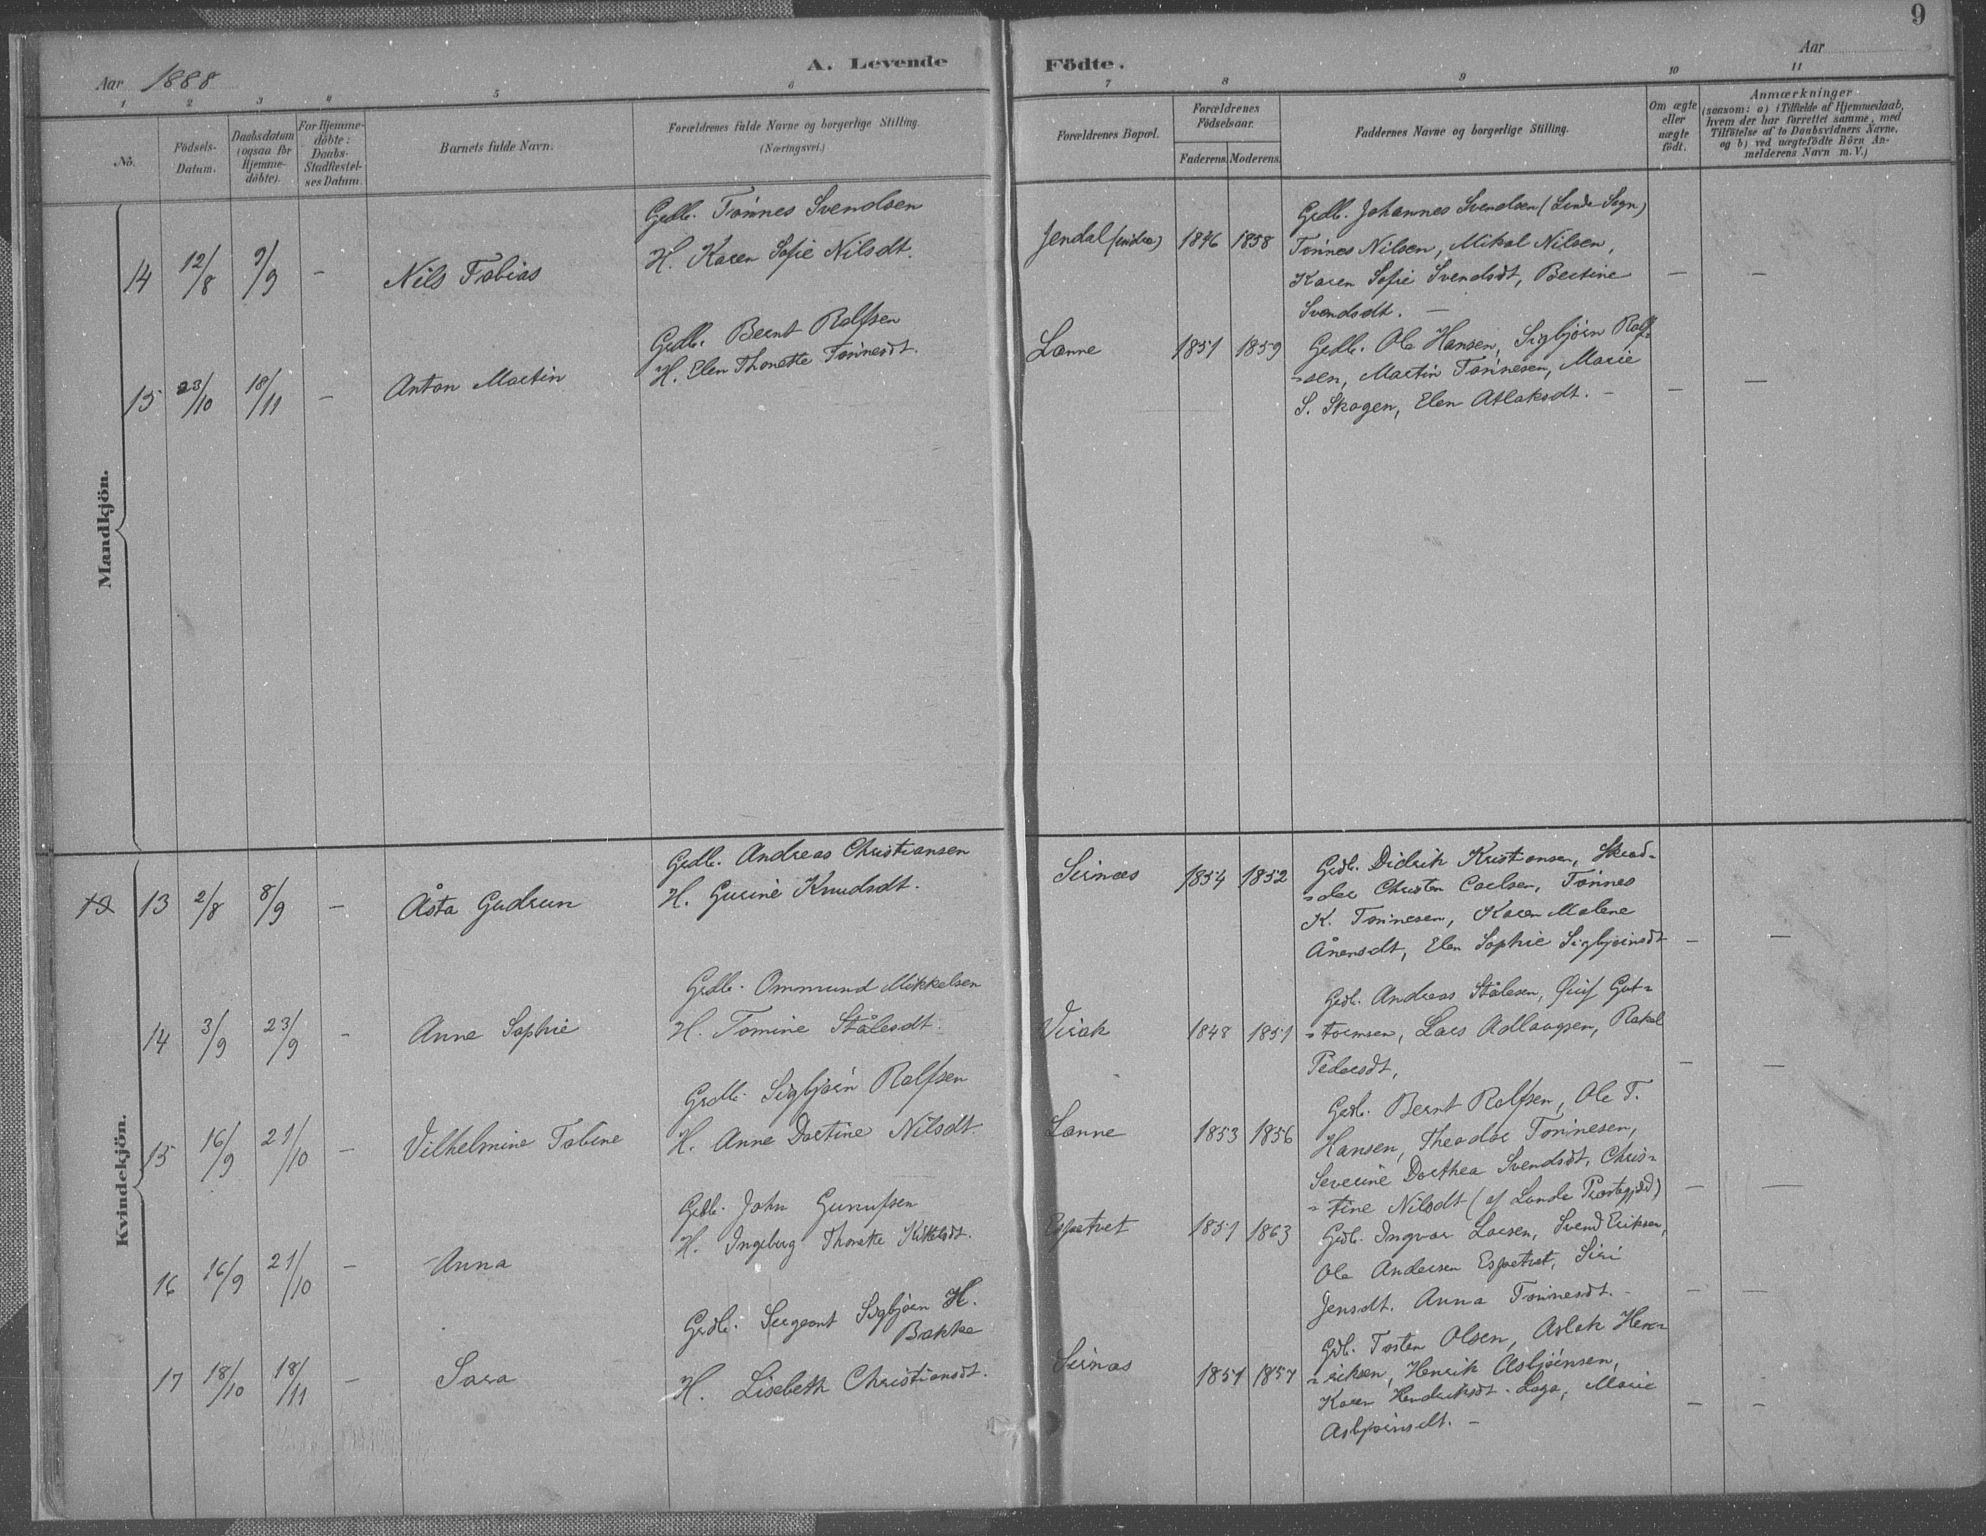 9
Aar 1888
A. Levende Födte.
Aar
1 2 3 4 5 6 7 8 9 10 11
No.
Födsels-Datum.
Daabsdatum (ogsaa for Hjemmedöbte).
For Hjemmedöbte: Daabs-Stadfæstelses Datum.
Barnets fulde Navn.
Forældrenes fulde Navne og borgerlige Stilling.
(Næringsvei.)
Forældrenes Bopæl.
Forældrenes Födselsaar.
Faderens. Moderens.
Faddernes Navne og borgerlige Stilling.
Om ægte eller uægte födt.
Anmærkninger
(saasom: a) i Tilfælde af Hjemmedaab, hvem der har forrettet samme, med Tilföielse af to Daabsvidners Navne, og b) ved uægtefödte Börn Anmelderens Navn m. V.)
Mandkjön.
14 12/8 9/9 – Nils Tobias
Gdb. Tönnes Svendsen
H. Karen Sofie Nilsdt.
Jendal 1846 1858
Gdb. Johannes Svendsen (Lunde Sogn)
Tönnes Nilsen, Mikal Nilsen,
Karen Sofie Svendsdt, Bertine
Svendsdt. –
15 23/10 18/11 – Anton Martin
Gdb. Bernt Rolfsen
H. Elen Thonette Tönnesdt.
Lønne 1851 1859
Gdb. Ole Hansen, Sigbjørn Rolf-
-sen, Martin Tönnesen, Marie
S. Skogen, Elen Aslaksdt. –
Kvindekjön.
13 13 2/8 8/9 – Åsta Gudrun
Gdb. Andreas Christiansen
H. Gurine Knudsdt.
Sirnæs 1854 1852
Gdb. Didrik Kristiansen, Skræd-
-der Christen Carlsen, Tönnes
K. Tönnesen, Karen Malene
Ånensdt, Elen Sophie Sigbjørnsdt –
14 3/9 23/9 – Anne Sophie
Gdb. Ommund Mikkelsen
H. Tomine Stålesdt.
Virak 1848 1851
Gdb. Andreas Stålesen, Gut-
-tormsen, Lars Adlaugsen, Rakel
Pedersdt,
15 16/9 21/10 – Vilhelmine Tobine
Gdb. Sigbjørn Rolfsen
H. Anne Dortine Nilsdt.
Lønne 1853 1856
Gdb. Bernt Rolfsen, Ole T.
Hansen, Theodor Tönnesen,
Severine Dorthea Svendsdt, Chris-
-tine Nilsdt (af Lunde Præstegjeld)
16 16/9 21/10 – Anna
Gdb. John Gunufsen
H. Ingeborg Thonette
Espetvet 1851 1863
Gdb. Ingvar Larsen, Svend Eriksen,
Ole Andersen Espetvet, Siri
Jensdt. Anna Tönnesdt. –
17 18/10 18/11 – Sara
Gdb. Sergeant Sigbjørn H.
Bakke
H. Lisebeth Christiansdt.
Sirnæs 1851 1857
Gdb. Tosten Olsen, Aslak Hen-
-riksen, Henrik Asbjörnsen,
Karen Hendriksdt Laga, Marie
Asbjörnsdt. –